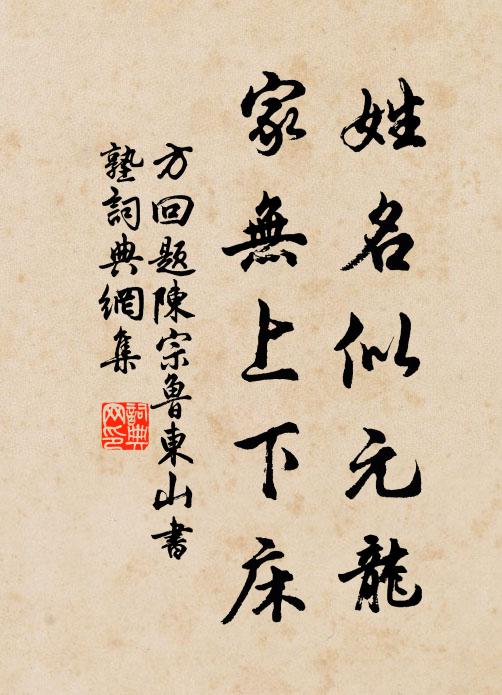 姓名似元龍
家無上下床
方回題陳宗魯東山書
塾詞典網集
詞典网印